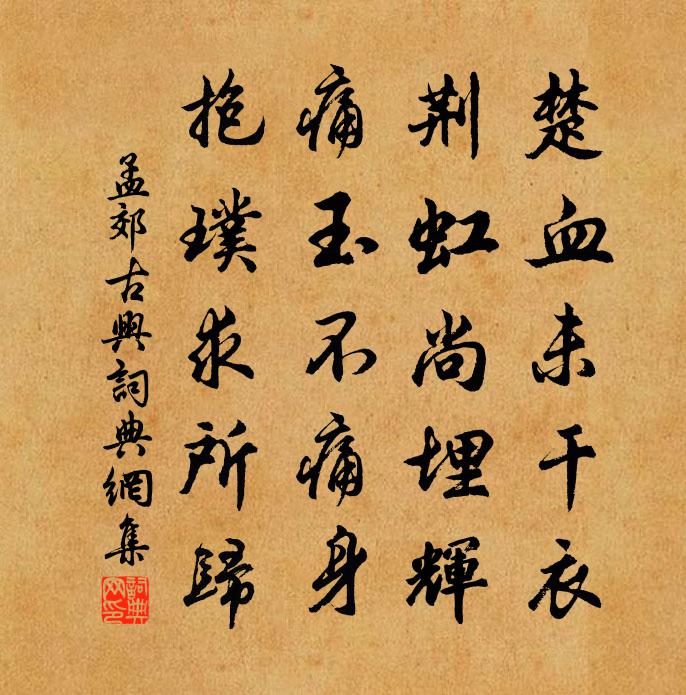 楚血未干衣
荆虹尚埋輝
痛玉不痛身
抱璞求所歸
孟郊古興詞典網集
詞典網印